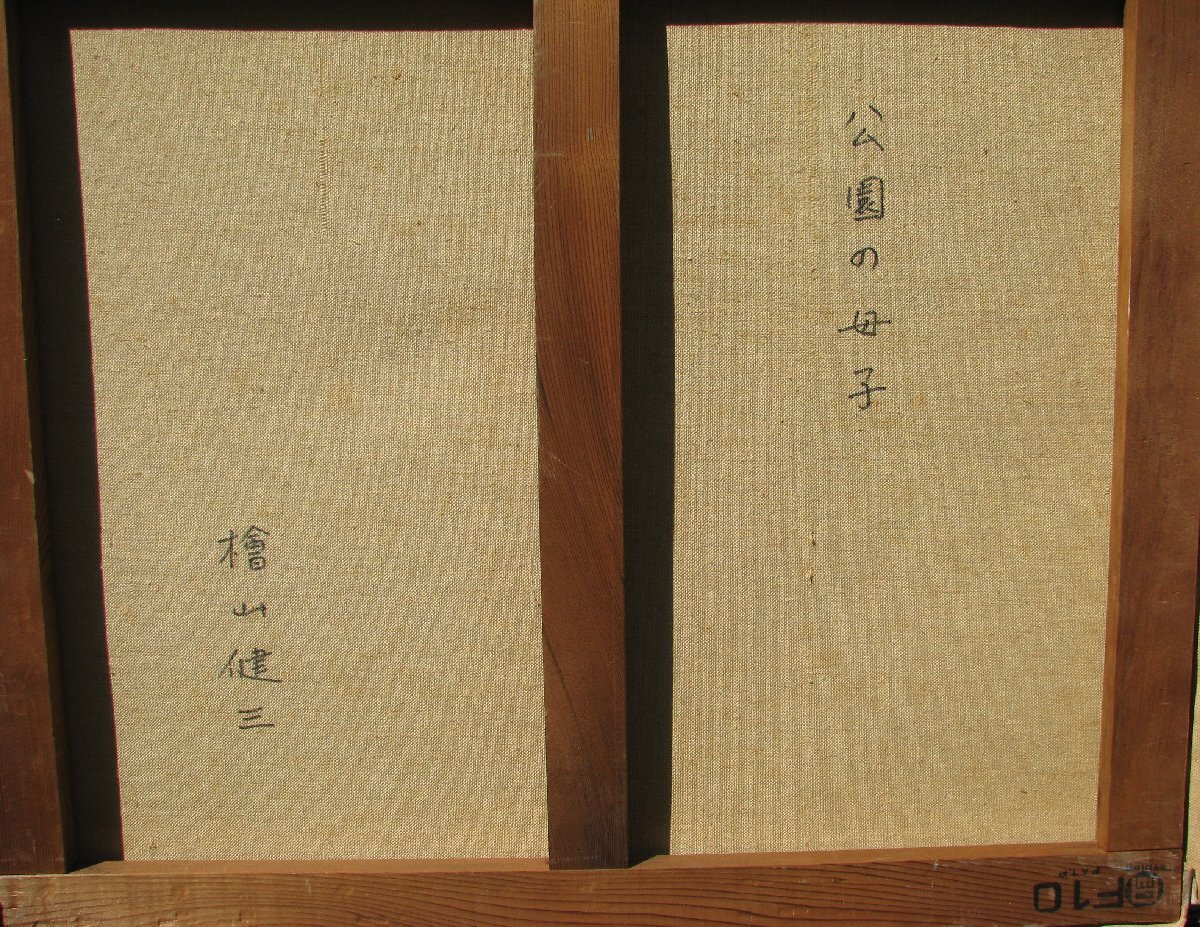 公園の母子
檜山健三
F10